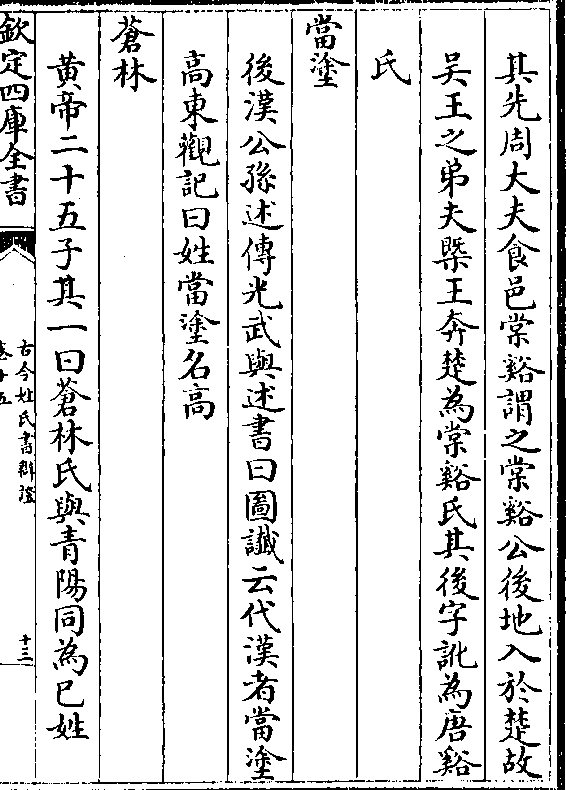 其先周大夫食邑棠谿謂之棠谿公後地入於楚故
吴王之弟夫槩王奔楚為棠谿氏其後字訛為唐谿
氏
當塗
後漢公孫述傳光武與述書曰圖讖云代漢者當塗
高東觀記曰姓當塗名高
蒼林
黄帝二十五子其一曰蒼林氏與青陽同為已姓
欽定四庫全書
古今姓氏書辯證
卷十五
十三